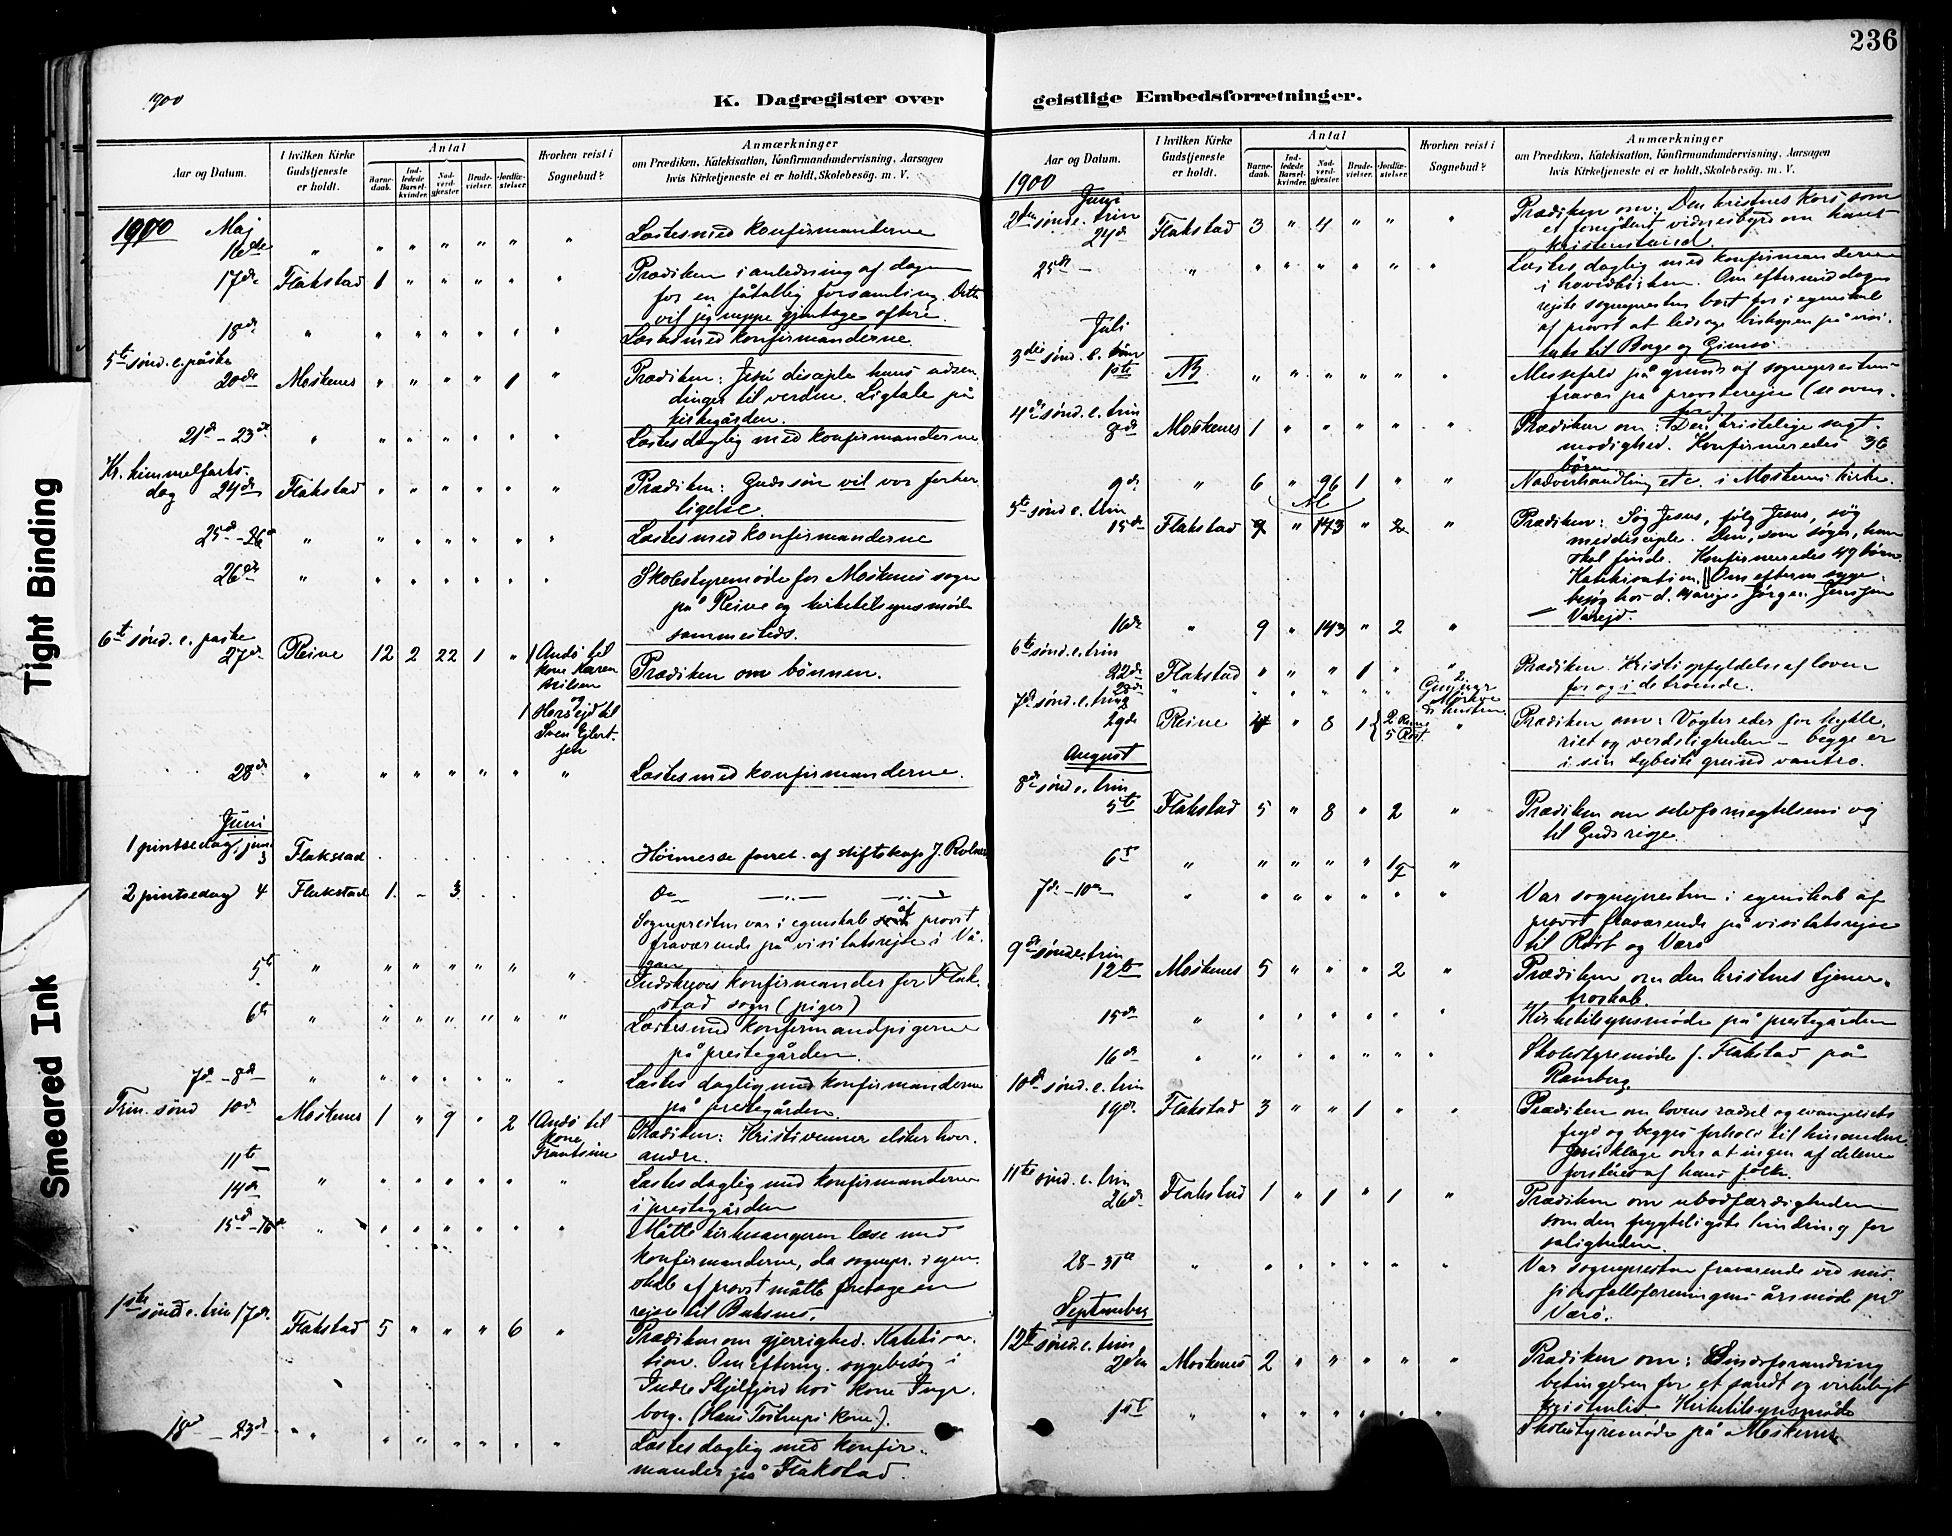 236
1900
K. Dagregister over geistlige Embedsforretninger.
Tight Binding
Smeared Ink
Aar og Datum.
I hvilken Kirke Gudstjeneste er holdt.
Antal
Barnedaab.
Indledede Barselkvinder.
Nadverdgjester
Brudevielser.
Jordfæstelser.
Hvorhen reist i Sognebud?
Anmærkninger
om Prædiken, Katekisation, Konfirmandundervisning, Aarsagen
hvis Kirketjeneste ei er holdt, Skolebesøg. m. V.
1900 Maj
16de " " " " " " " Læstes med konfirmanderne
17de Flakstad 1 " " " " " Prædiken i anledning af dagen
for en fåtallig forsamling. Dette
vil jeg neppe gjentage oftere.
18de " " " " " " " Læstes med konfirmanderne.
5te sønd. e. påske
20de Moskenes " " " " 1 " Prædiken: Jesu disciple hans udsen-
dinger til verden. Ligtale på
kirkegården.
21de - 23de " " " " " " " Læstes daglig med konfirmanderne
Kr. himmelfarts-
dag 24de Flakstad " " " " " " Prædiken: Guds søn vil vor forher-
ligelse.
25de - 26de " " " " " " " Læstes med konfirmanderne
26de " " " " " " " Skolestyremøde for Moskenes sogn
på Reine og kirketilsynsmøde
sammesteds.
6te sønd. e. paske
27de Reine 12 2 22 1 " 1 Andø til Prædiken om bønnen.
kone Karen
Nilsen
og
1 Hersejd til
Sven Ejlert-
sen
28de " " " " " " " Læstes med konfirmanderne.
Juni
1 pintsedag, juni
3 Flakstad . . . . . . Høimesse forret. af stiftskap. J. Rolness
2 pintsedag 4 Flakstad 1. - 3 . . Do
Sognepresten var i egenskab af provst
fraværende på visitatsrejse i Vå-
gan
5te " " " " " " " Indskreves konfirmander for Flak-
stad sogn (piger)
6te " " " " " " " Læstes med konfirmandpigerne
på prestegården.
7de - 8de " " " " " " " Læstes daglig med konfirmanderne
på prestegården.
Trin. sønd 10de Moskenes 1 " 9 " 2 1 Andø til Prædiken: Kristi venner elsker hver-
kone andre.
Frantsine
11te
14de " " " " " " " Læstes daglig med konfirmanderne
i prestegården
15de - 16de " " " " " " " Måtte kirkesangeren læse med
konfirmanderne, da sognepr. i egen-
skab af provst måtte foretage en
rejse til Buksnes.
1ste sønd e. trin 17de Flakstad 5 " " " 6 " Prædiken om gjerrighed. Katekisa-
tion. Om efterm. sygebesøg i
Indre Skjelfjord hos kone Inge-
borg. (Hans Tostrups kone).
18de - 23de " " " " " " " Læstes daglig med konfir-
mander på Flakstad.
Aar og Datum.
I hvilken Kirke Gudstjeneste er holdt.
Antal
Barnedaab.
Indledede Barselkvinder.
Nadverdgjester.
Brudevielser.
Jordfæstelser.
Hvorhen reist i Sognebud?
Anmærkninger
om Prædiken, Katekisation, Konfirmandundervisning, Aarsagen
hvis Kirketjeneste ei er holdt, Skolebesøg. m. V.
1900
Juni
2den sønd e. trin
24de Flakstad 3 " 4 " " " Prædiken om: Den kristnes kors, som
et fornødent vidnesbyrd om hans
kristenstand.
25de " " " " " " " Læstes daglig med konfirmanderne
i hovedkirken. Om eftermiddagen
rejste sognepresten bort for i egenskab
af provst at ledsage biskopen på visi-
tats til Borge og Gimsø
Juli
3die sønd. e. trin
1ste NB. " " " " " " Messefald på grund af sogneprestens
fravær på provsterejse (se oven-
for)
4de sønd. e. trin
8de Moskenes 1 " " " " " Prædiken om: Den kristelige sagt-
modighed. Konfirmeredes 36
børn
9de " 6 " 96 1 " " Nadverhandling etc. i Moskenes kirke.
5te sønd e. trin
15de Flakstad 9 " 143 " 2 " Prædiken: Søg Jesus, følg Jesus, søg
meddisciple. Den, som søger, han
skal finde. Konfirmeredes 49 børn
Katekisation. Om efterm. syge-
besøg hos d. Jørgen Jensen
Varejd.
16de " 9 " 143 " 2 "
6te sønd. e. trin
22de Flakstad " " " 1 " " Prædiken. Kristi opfyldelse af loven
for og i de troende.
7de sønd. e. trin
29de Reine 4 " 8 1 2 Reine 5 Røst " Prædiken om: Vogter eder for hykle-
riet og verdsligheden - begge er
i sin dybeste grund vantro.
August
8de sønd e. trin
5te Flakstad 5 " 8 " 2 " Prædiken om selvfornegtelsens vej
til Guds rige.
6te " " " " " 1 "
7de - 10de " " " " " " " Var sognepresten i egenskab af
provst fraværende på visitatsrejse
til Røst og Værø
9de sønd e. trin
12te Moskenes 5 " " " 2 " Prædiken om den kristnes tjener-
troskab.
15de " " " " " " " Kirketilsynsmøde på prestegården
16de " " " " " " " Skolestyremøde f. Flakstad på
Ramberg.
10de sønd. e. trin
19de Flakstad 3 " " 1 " " Prædiken om lovens rædsel og evangeliets
fryd og begges forhold til hinanden.
Jesus klage over at ingen af delene
forståes af hans folk.
11te sønd. e. trin
26de Flakstad 1 " 1 " 1 " Prædiken om ubodfærdigheden
som den frygteligste hindring for
saligheden.
28 - 31te " " " " " " " Var sognepresten fraværende ved mis-
årsmøde på
Værø.
September
12te sønd. e. trin
2den Moskenes 2 " " " " " Prædiken om: Sindsforandring
betingelsen for et sandt og virkeligt
kristenliv. Kirketilsynsmøde
1ste " " " " " " " Skolestyremøde på Moskenes